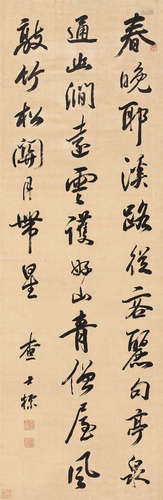 春晚耶溪路從容麗句亭泉
通幽澗遠雲護好山青僧屋風
敲竹松關月帶星
查士標